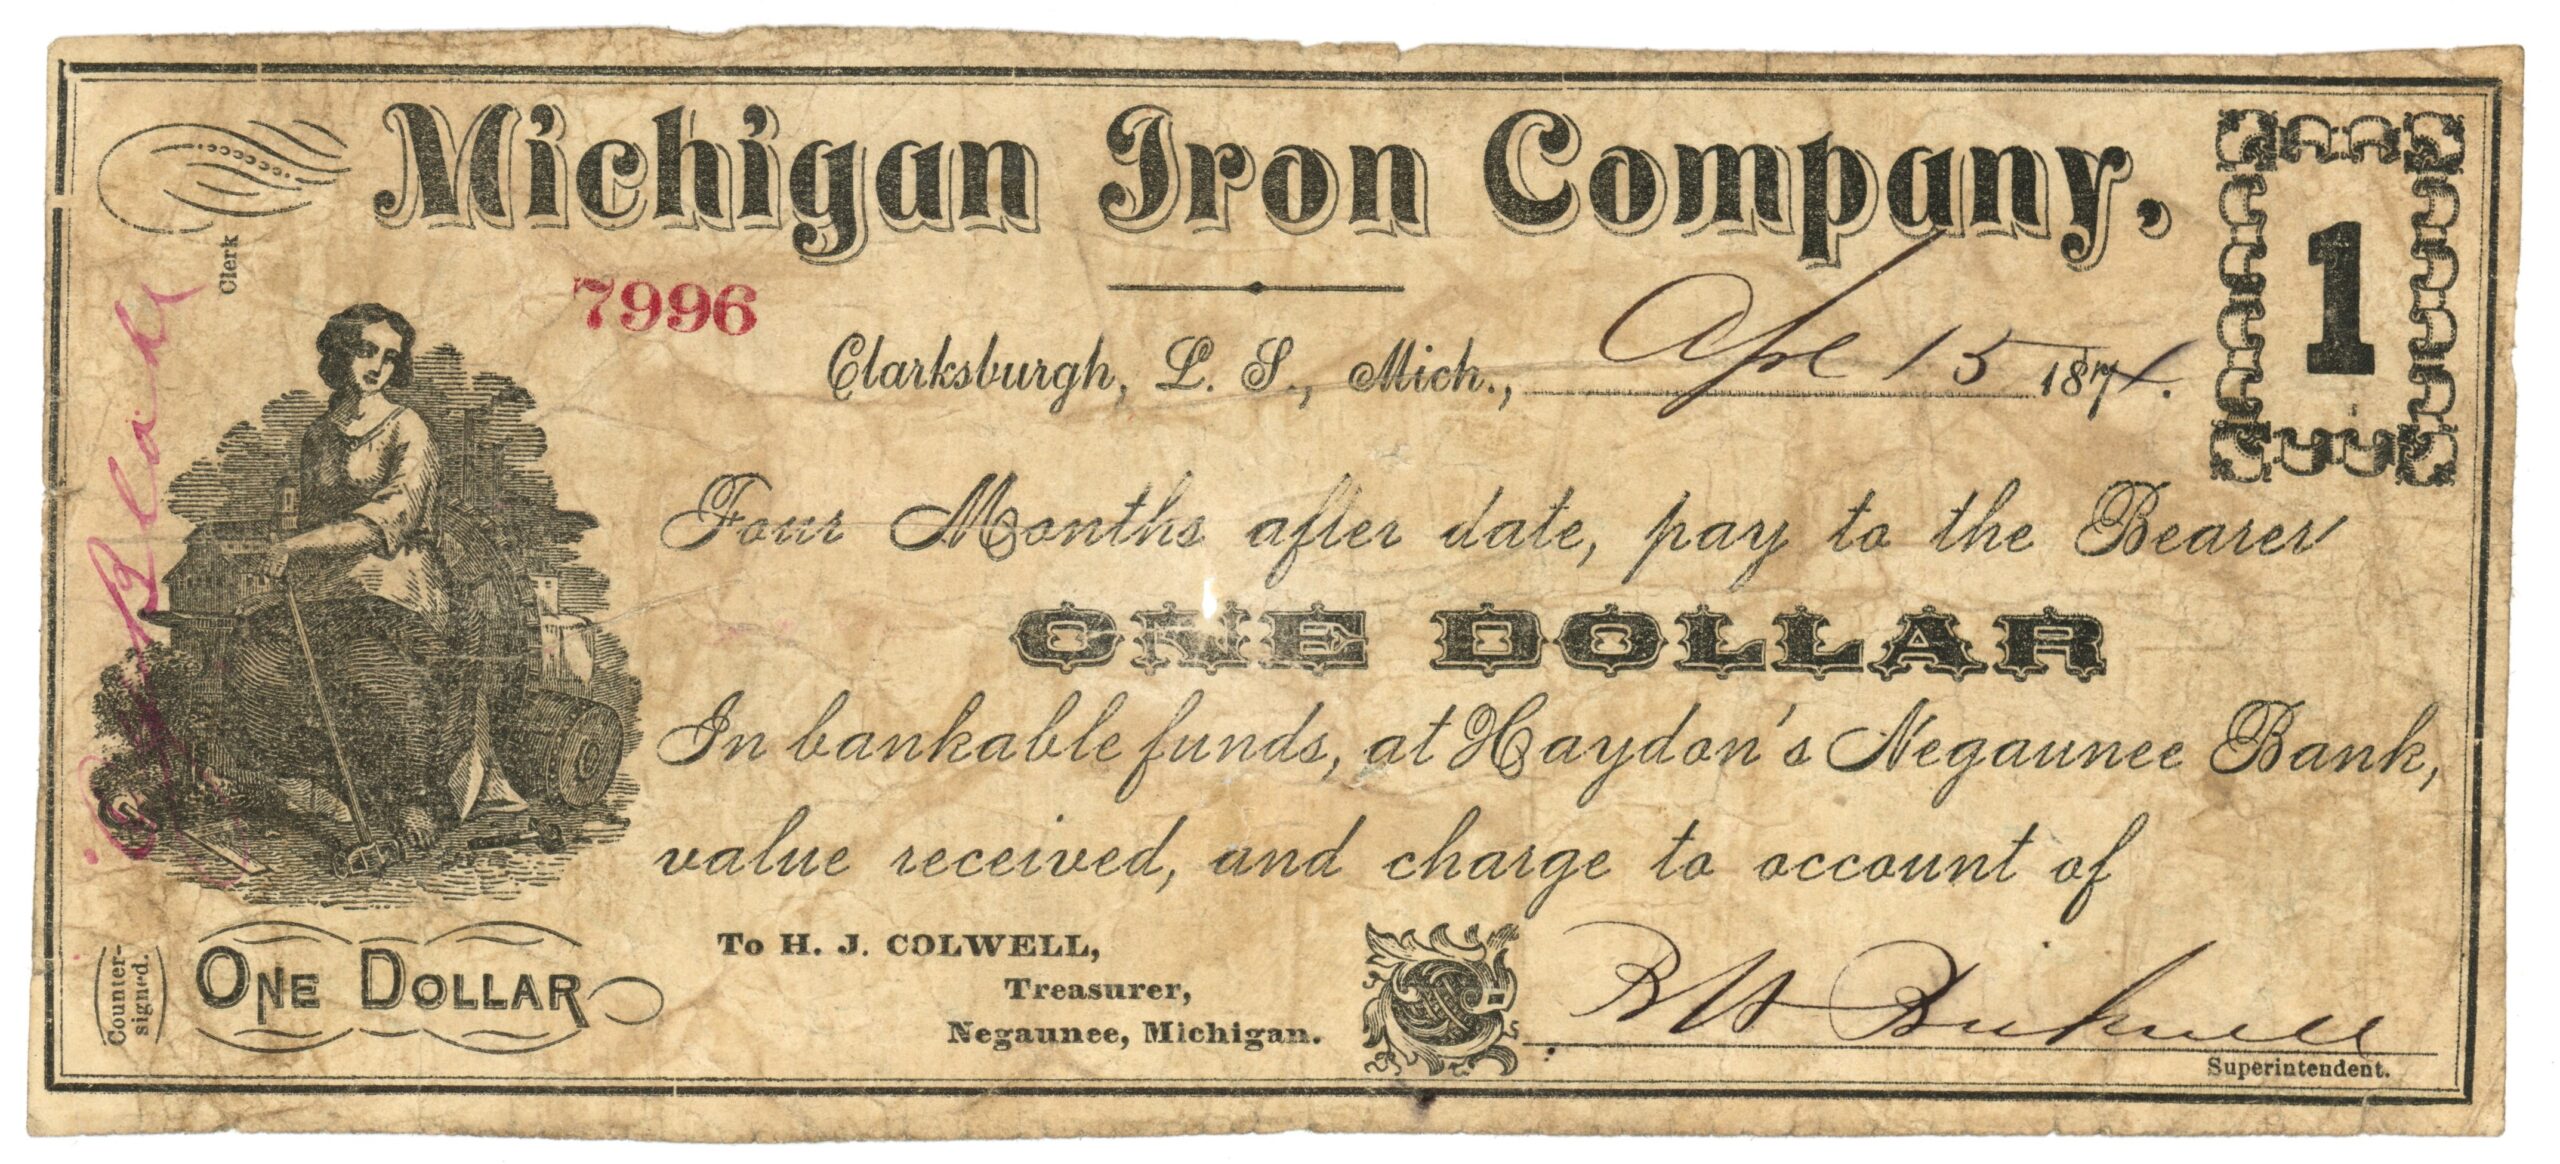 Michigan Iron Company,
7996
1
Clarksburgh, L. S., Mich., Apl 15 1874.
Four Months after date, pay to the Bearer
ONE DOLLAR
In bankable funds, at Haydon's Negaunee Bank,
value received, and charge to account of
To H. J. COLWELL,
Treasurer,
Negaunee, Michigan.
Superintendent.
ONE DOLLAR
Counter-
signed.
Clerk